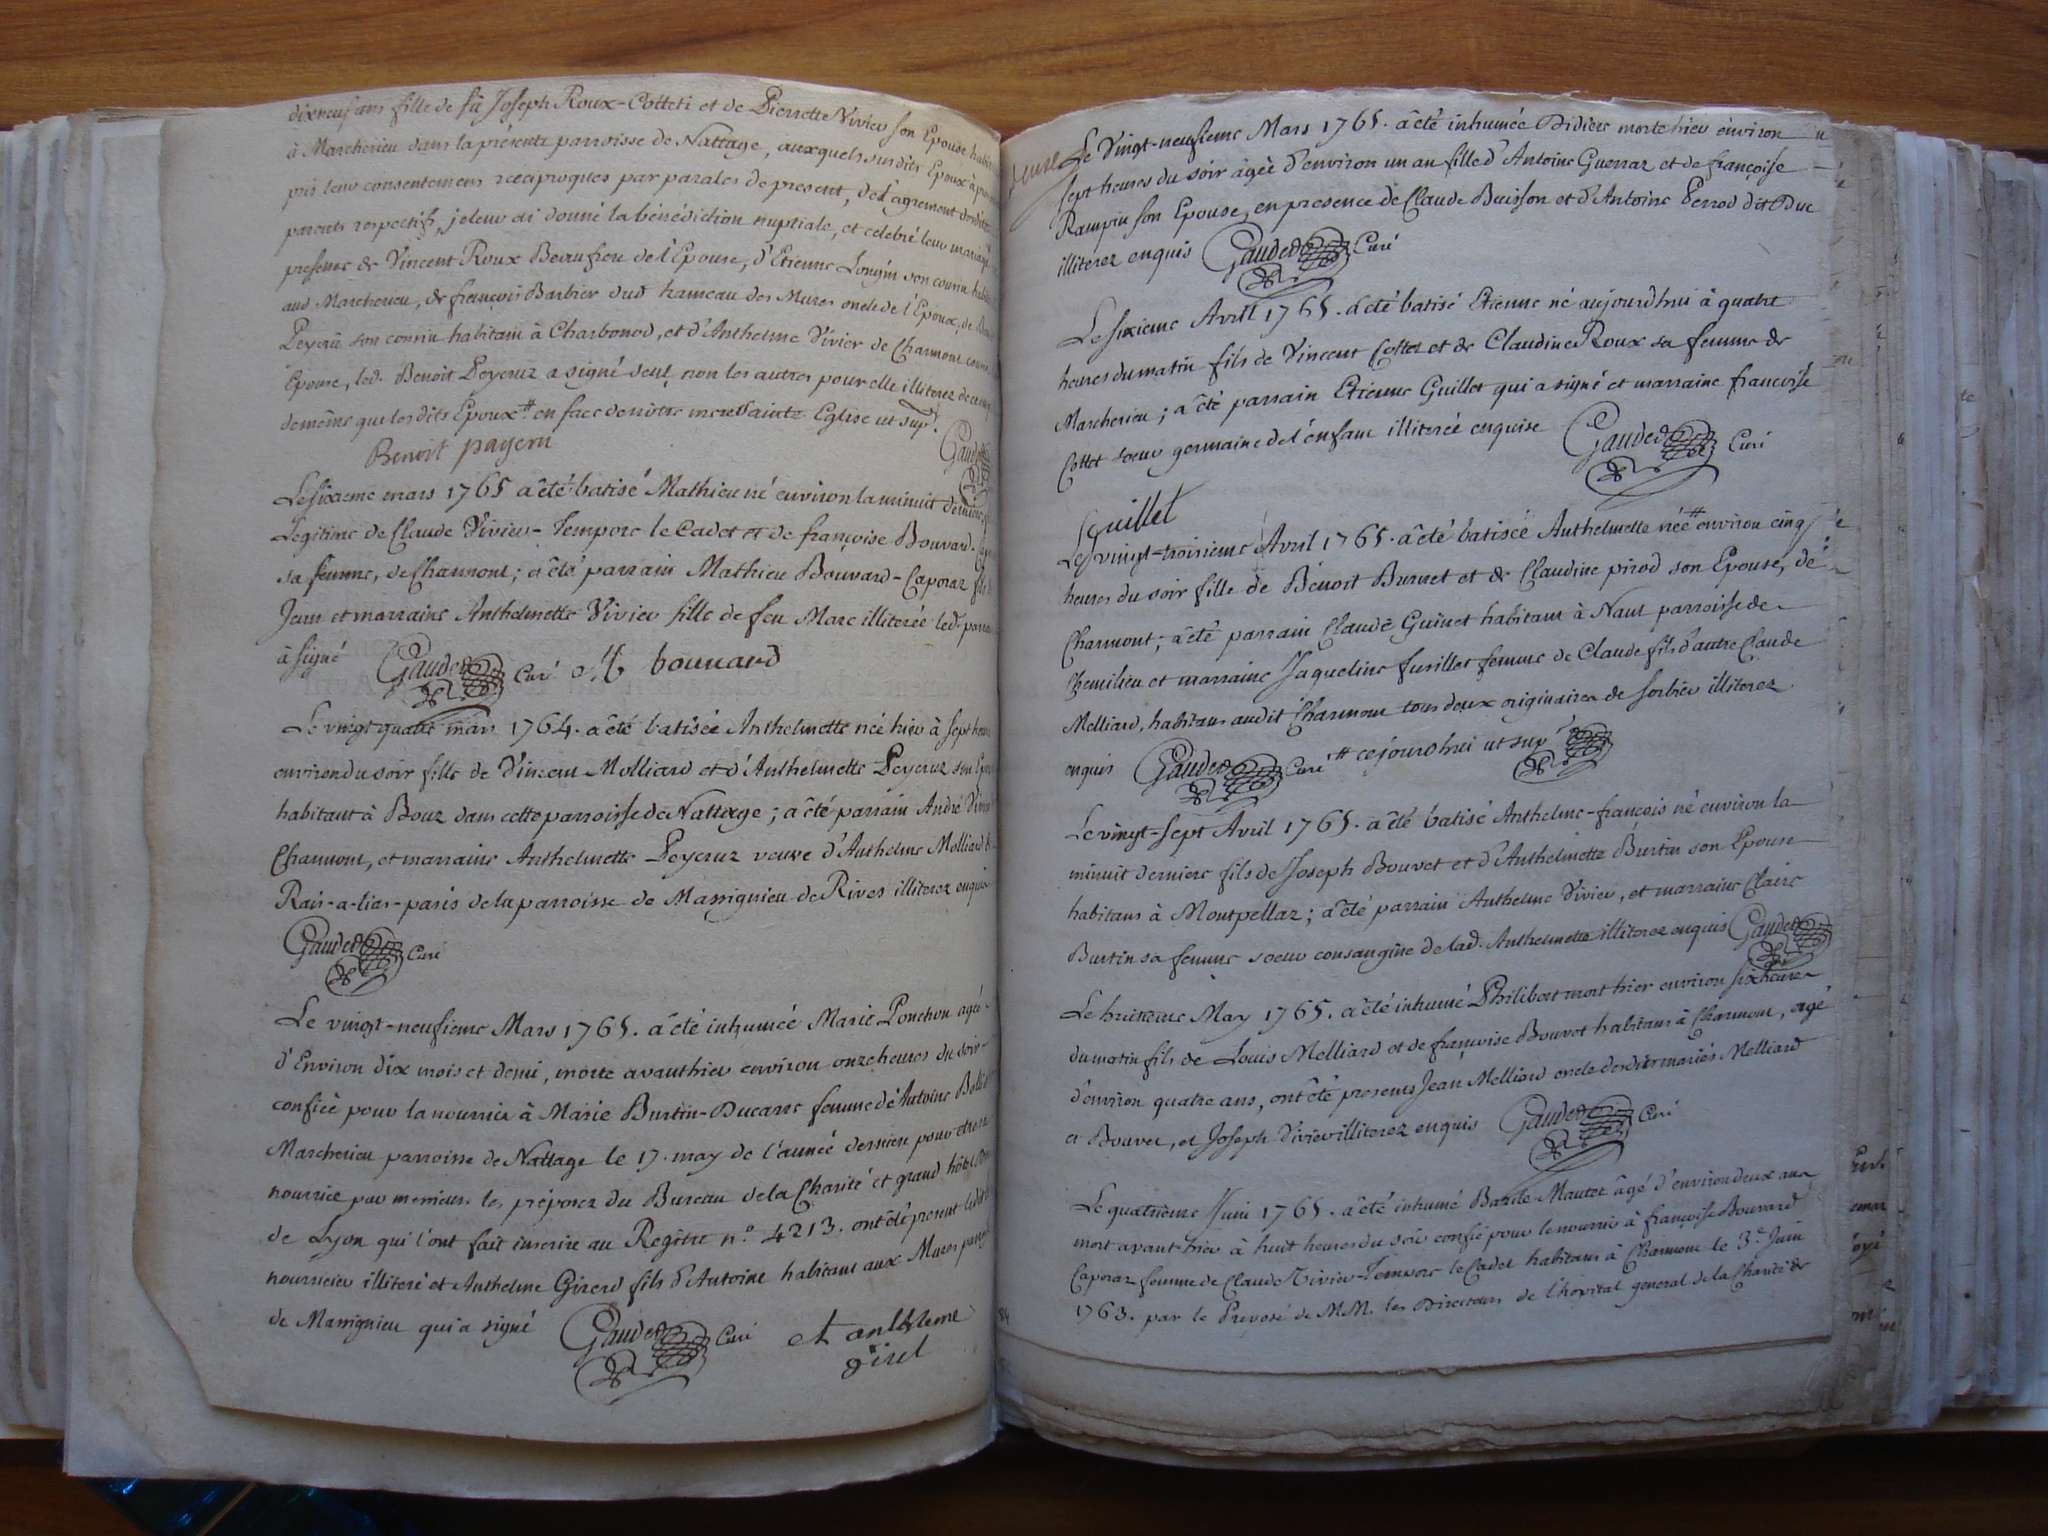 dixneuf ans fille de fû Joseph Roux-Cotteti et de Pierrette Vivier son Epouse
à Marcherieu dans la présente parroisse de Nattage, auxquels susdits Epoux
pris leur consentemens reciproques par paroles de present, de l'agrement
parents respectifs, je leur ai donné la bénédiction nuptiale, et celebré leur mariage
presence de Vincent Roux Beaufrere de l'Epouse, d'Etienne Longin son cousin
aud Marcherieu, de françois Barbier dud hameau des Mures oncle de l'Epoux, de
Peyeru son cousin habitant à Charbonod, et d'Anthelme Vivier de Charmont cousin
Epouse, led. Benoit Peyeruz a signé seul non les autres pour elle illiterez de
de même que les dits Epoux # en face de nôtre mere Sainte Eglise ut sup.
Benoit payeru
Gaudet
Le sixieme mars 1765 a été batisé Mathieu né environ la minuit derniere
Legitime de Claude Vivier-Tempore le Cadet et de françoise Bouvard
sa femme, de Charmont; a été parrain Mathieu Bouvard-Caporaz fils
Jean et marraine Anthelmette Vivier fille de feu Marc illiterée led.
à signé Gaudet Curé M bouvard
Le vingt quatre mars 1764. a été batisée Anthelmette née hier à sept
environ du soir fille de Vincent Molliard et d'Anthelmette Peyeruz son
habitant à Bouz dans cette parroisse de Nattage; a été parrain André
Charmont, et marraine Anthelmette Peyeruz veuve d'Anthelme Molliard
Rais-a-lier-paris de la parroisse de Massignieu de Rives illiterez enquis
Gaudet Curé
Le vingt-neufieme Mars 1765. a été inhumée Marie Ponchon agée
d'Environ dix mois et demi, morte avanthier environ onze heures du soir
confiée pour la nourrir à Marie Burtin-Ducarre femme d'Antoine
Marcherieu parroisse de Nattage le 17. may de l'année derniere pour etre
nourrice par messieurs les préposez du Bureau de la Charité et grand hôtel
de Lyon qui l'ont fait inscrire au Registre n.° 4213. ont été present ledit
nourricier illiteré et Anthelme Girerd fils d'Antoine habitant aux Mures
de Massignieu qui a signé Gaudet Curé et anthleme
girel
Le Vingt-neufieme Mars 1765. a été inhumée Didiere morte hier environ
sept heures du soir agée d'environ un an fille d'Antoine Guerraz et de françoise
Rampin son Epouse, en presence de Claude Buisson et d'Antoine Perrod dit Duc
illiterez enquis Gaudet Curé
Le sixieme Avril 1765. a été batisé Etienne né aujourdhui à quatre
heures du matin fils de Vincent Cottet et de Claudine Roux sa femme de
Marcherieu; a été parrain Etienne Guillet qui a signé et marraine francoise
Cottet soeur germaine de l'enfant illiterée enquise Gaudet Curé
Guillet
Le vingt-troisieme Avril 1765. a été batisée Anthelmette née # environ cinq
heures du soir fille de Benoit Burnet et de Claudine pirod son Epouse, de
Charmont; a été parrain Claude Guinet habitant à Nant parroisse de
Chemilieu et marraine Jaqueline fusillet femme de Claude fils d'autre Claude
Melliard, habitans audit Charmont tous deux originaires de sorbier illiterez
enquis Gaudet Curé # cejourdhui ut sup
Le vingt-sept Avril 1765. a été batisé Anthelme-françois né environ la
minuit derniere fils de Joseph Bouvet et d'Anthelmette Burtin son Epouse
habitans à Montpellaz; a été parrain Anthelme Vivier, et marraine Claire
Burtin sa femme soeur consangine de lad. Anthelmette illiterez enquis Gaudet
Le huitieme May 1765. a été inhumé Philibert mort hier environ six heures
du matin fils de Louis Melliard et de françoise Bouvet habitans à Charmont, agé
d'environ quatre ans, ont été presens Jean Melliard oncle desdits mariés Melliard
et Bouvet, et Joseph Vivier illiterez enquis Gaudet Curé
Le quatrieme Juin 1765. a été inhumé Bazile Mautet âgé d'environ deux ans
mort avant hier à huit heures du soir confié pour le nourrir à françoise Bouvard
Caporaz femme de Claude Vivier-Tempore le Cadet habitans à Charmont le 3.e Juin
1763. par le Preposé de MM. les Directeurs de l'hôpital general de la Charité de